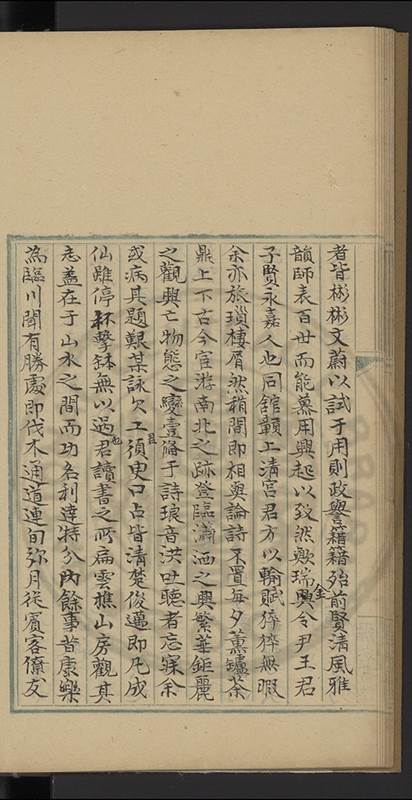 者皆彬彬文蔚以試于用則政譽籍籍殆前賢清風雅
韻師表百世而能慕用興起以致然歟瑞金興令尹王君
子賢永嘉人也同舘顥上清宮君方以輸賦猝猝無暇
余亦旅瑣棲屑然稍閒即相與論詩不置每夕薰罏茶
鼎上下古今宦游南北之跡登臨瀟洒之興繁華鉅麗
之觀興亡物態之變壹發于詩琅音洪吐聽者忘寐余
或病其題艱某詠欠工須臾口占皆清楚俊邁即凡成
仙雖停杯擊鉢無以過君讀書之所扁雲樵山房觀其
志蓋在于山水之間而功名利達特分內餘事昔康樂
為臨川聞有勝處即伐木通道連旬弥月從賓客僚友